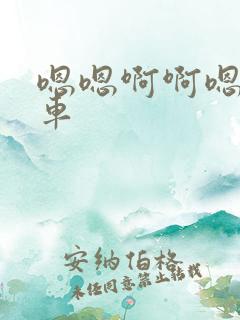 嗯嗯啊啊嗯
車
安纳伯格
未经同意禁止转载